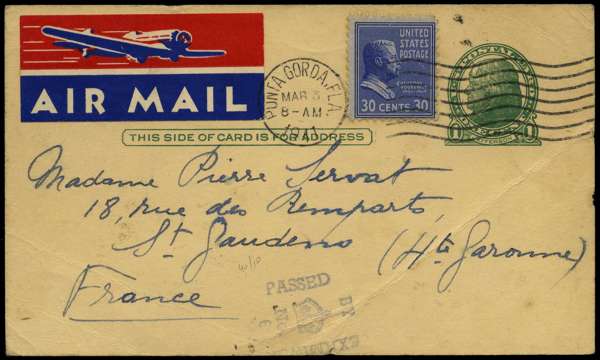 AIR MAIL
PUNTA GORDA, FLA.
MAR 3
8-AM
1941
UNITED
STATES
POSTAGE
30 CENTS 30
THIS SIDE OF CARD IS FOR ADDRESS
Madame Pierre Servat
18, rue des Remparts,
St Gaudens (Hte Garonne)
France
PASSED